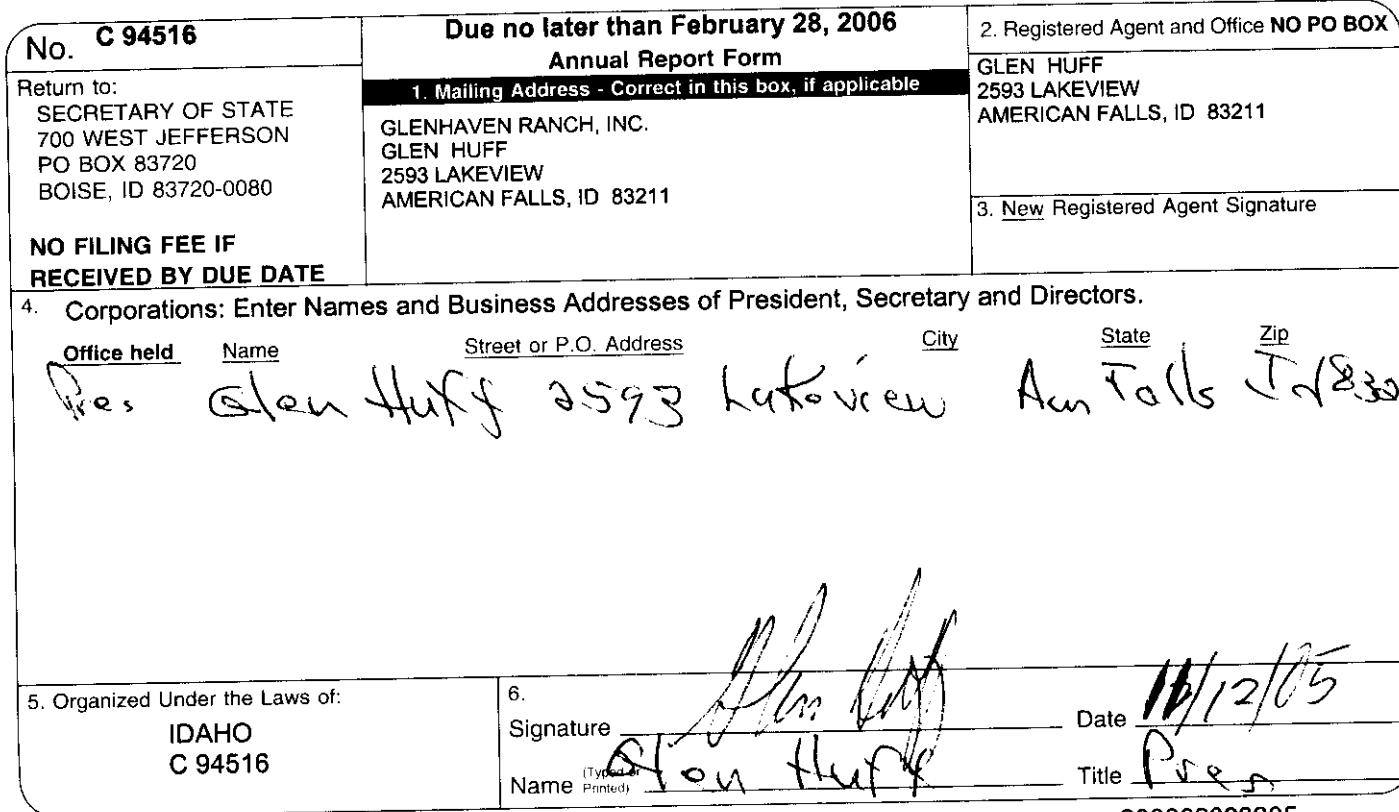 No. C 94516
Return to:
SECRETARY OF STATE
700 WEST JEFFERSON
PO BOX 83720
BOISE, ID 83720-0080
NO FILING FEE IF
RECEIVED BY DUE DATE
Due no later than February 28, 2006
Annual Report Form
1. Mailing Address - Correct in this box, if applicable
GLENHAVEN RANCH, INC.
GLEN HUFF
2593 LAKEVIEW
AMERICAN FALLS, ID 83211
2. Registered Agent and Office NO PO BOX
GLEN HUFF
2593 LAKEVIEW
AMERICAN FALLS, ID 83211
3. New Registered Agent Signature
4. Corporations: Enter Names and Business Addresses of President, Secretary and Directors.
Office held Name Street or P.O. Address City State Zip
Pres Glen Huff 2593 Lakeview Am Falls Id
5. Organized Under the Laws of:
IDAHO
C 94516
6.
Signature Glen Huff Date /12/05
Name (Typed or Printed) Glen Huff Title Pres